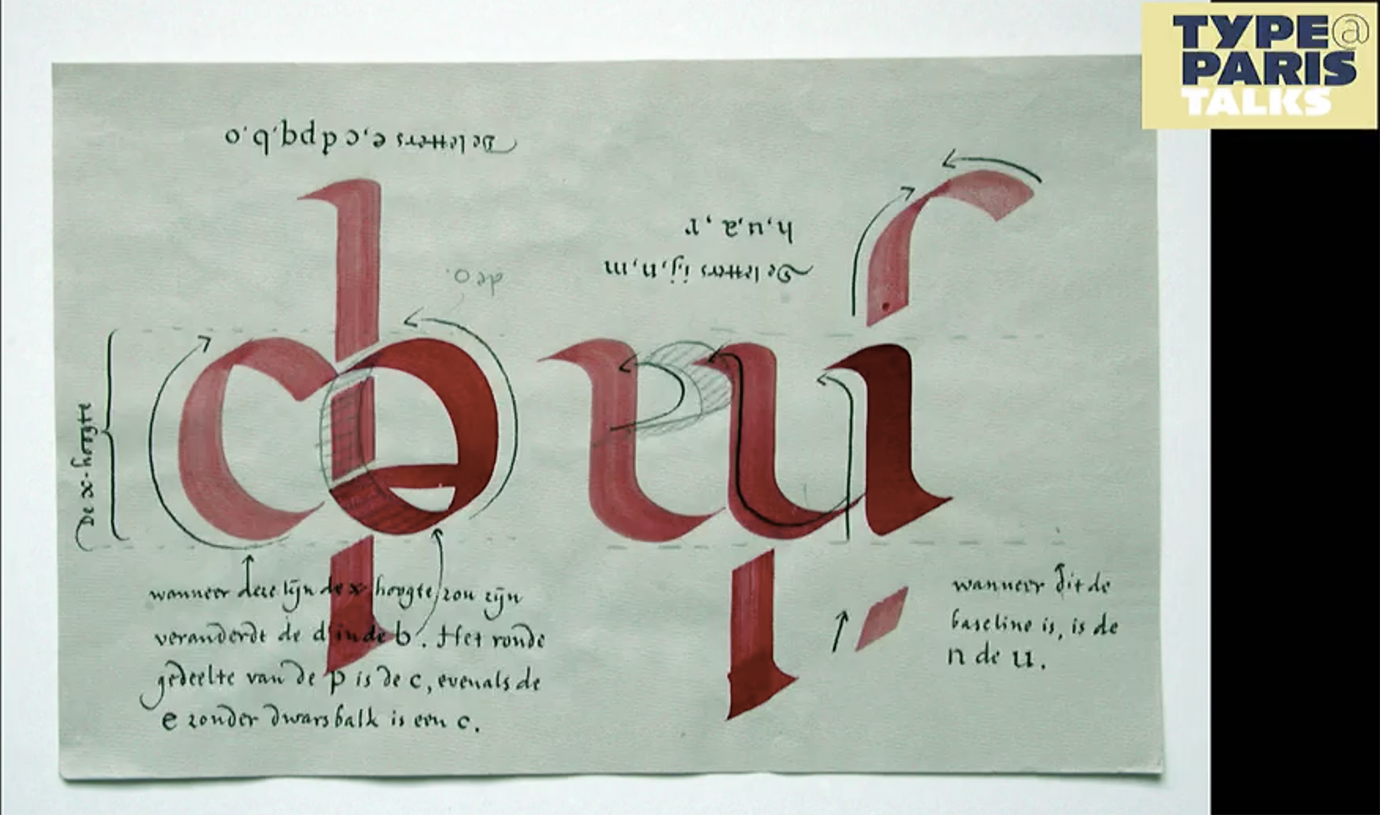 TYPE@
PARIS
TALKS
De letters e,c d p q, b, o
h, u, a, r
De letters ij, n, m
de o.
De x-hoogte
wanneer deze lijn de x hoogte zou zijn
veranderdt de d in de b. Het ronde
gedeelte van de p is de c, evenals de
e zonder dwarsbalk is een c.
wanneer dit de
baseline is, is de
n de u.